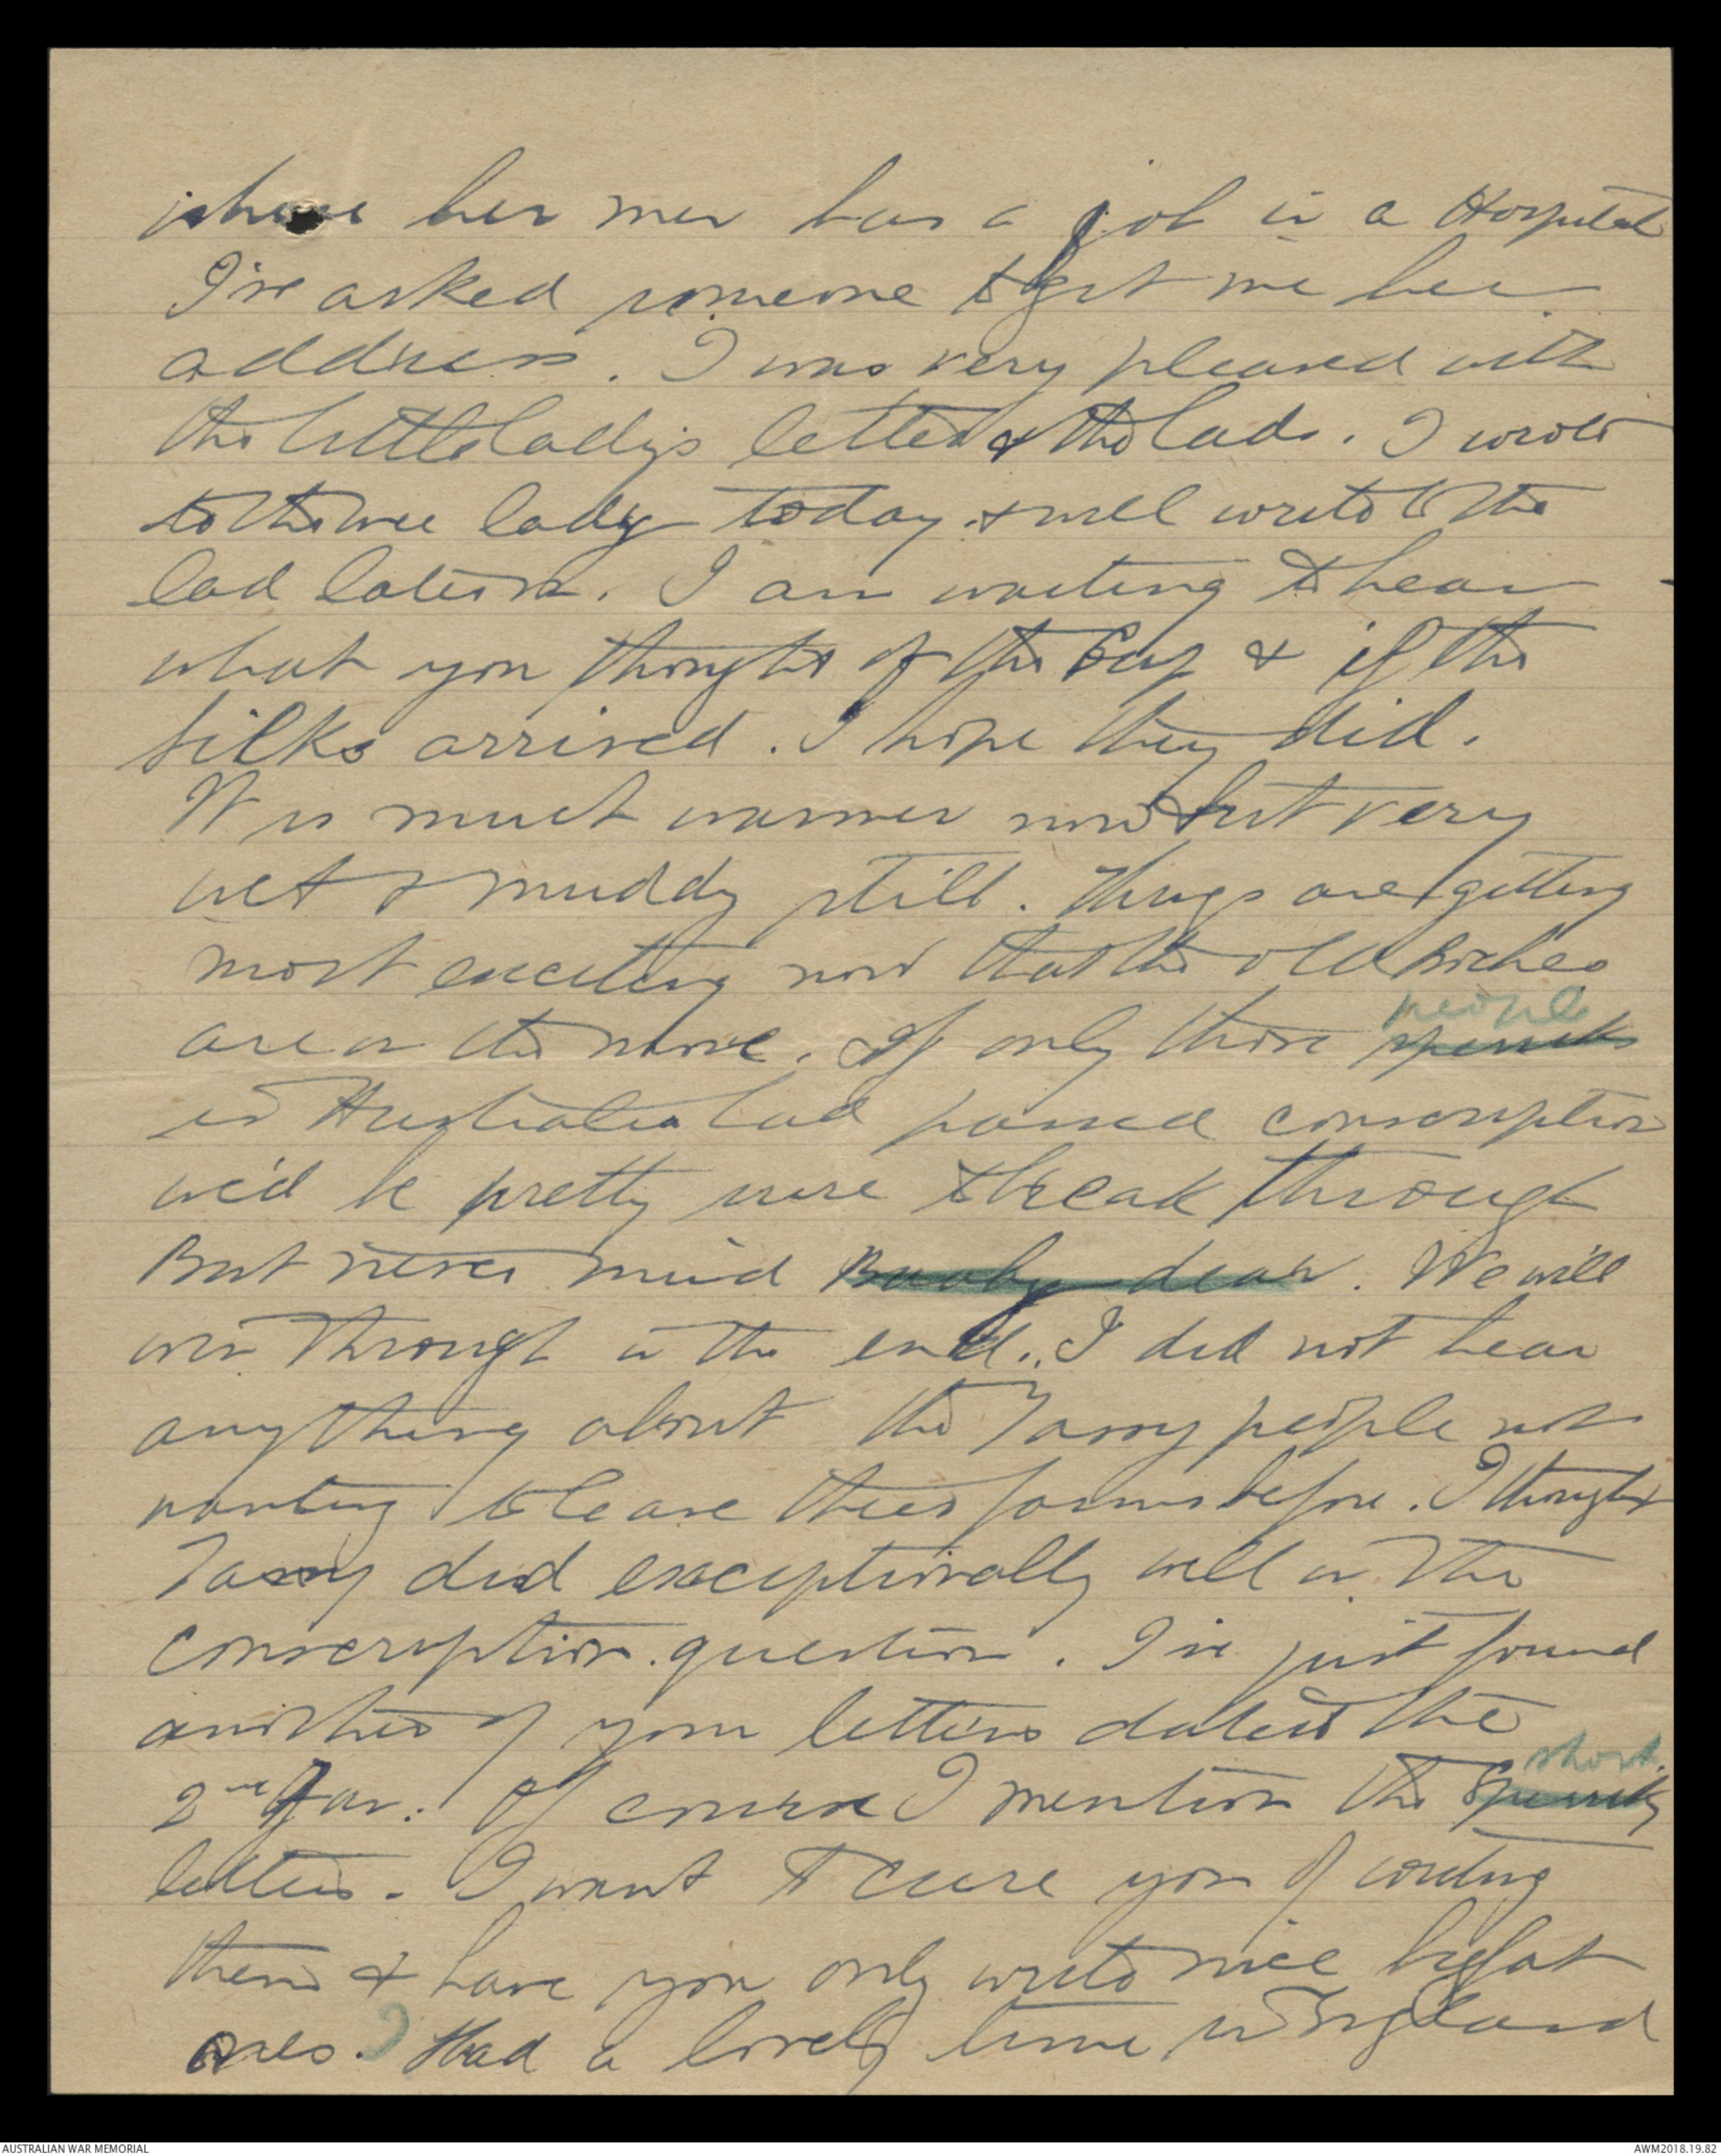 where her mer has a job in a Hospital
I've asked someone to get me her
address. I was very pleased with
the little lady's letter & the lads. I wrote
to the wee lady today & will write to the
lad later on. I am waiting to hear
what you thought of the Cup & if the
silks arrived. I hope they did.
It is much warmer now but very
wet & muddy still. Things are getting
most exciting now that the old Boches
people
are on the move. If only those
in Australia had passed conscription
we'd be pretty sure to break through
But never mind dear. We will
win through in the end. I did not hear
anything about the Tassy people not
wanting to leave their farms before. I thought
Tassy did exceptionally well in the
conscription question. I've just found
another of your letters dated the
short
2nd Jan: Of course I mention the
letters. I want to cure you of writing
them & have you only write nice bright
ones. I Had a lovely time in England
AUSTRALIAN WAR MEMORIAL
AWM2018.19.82